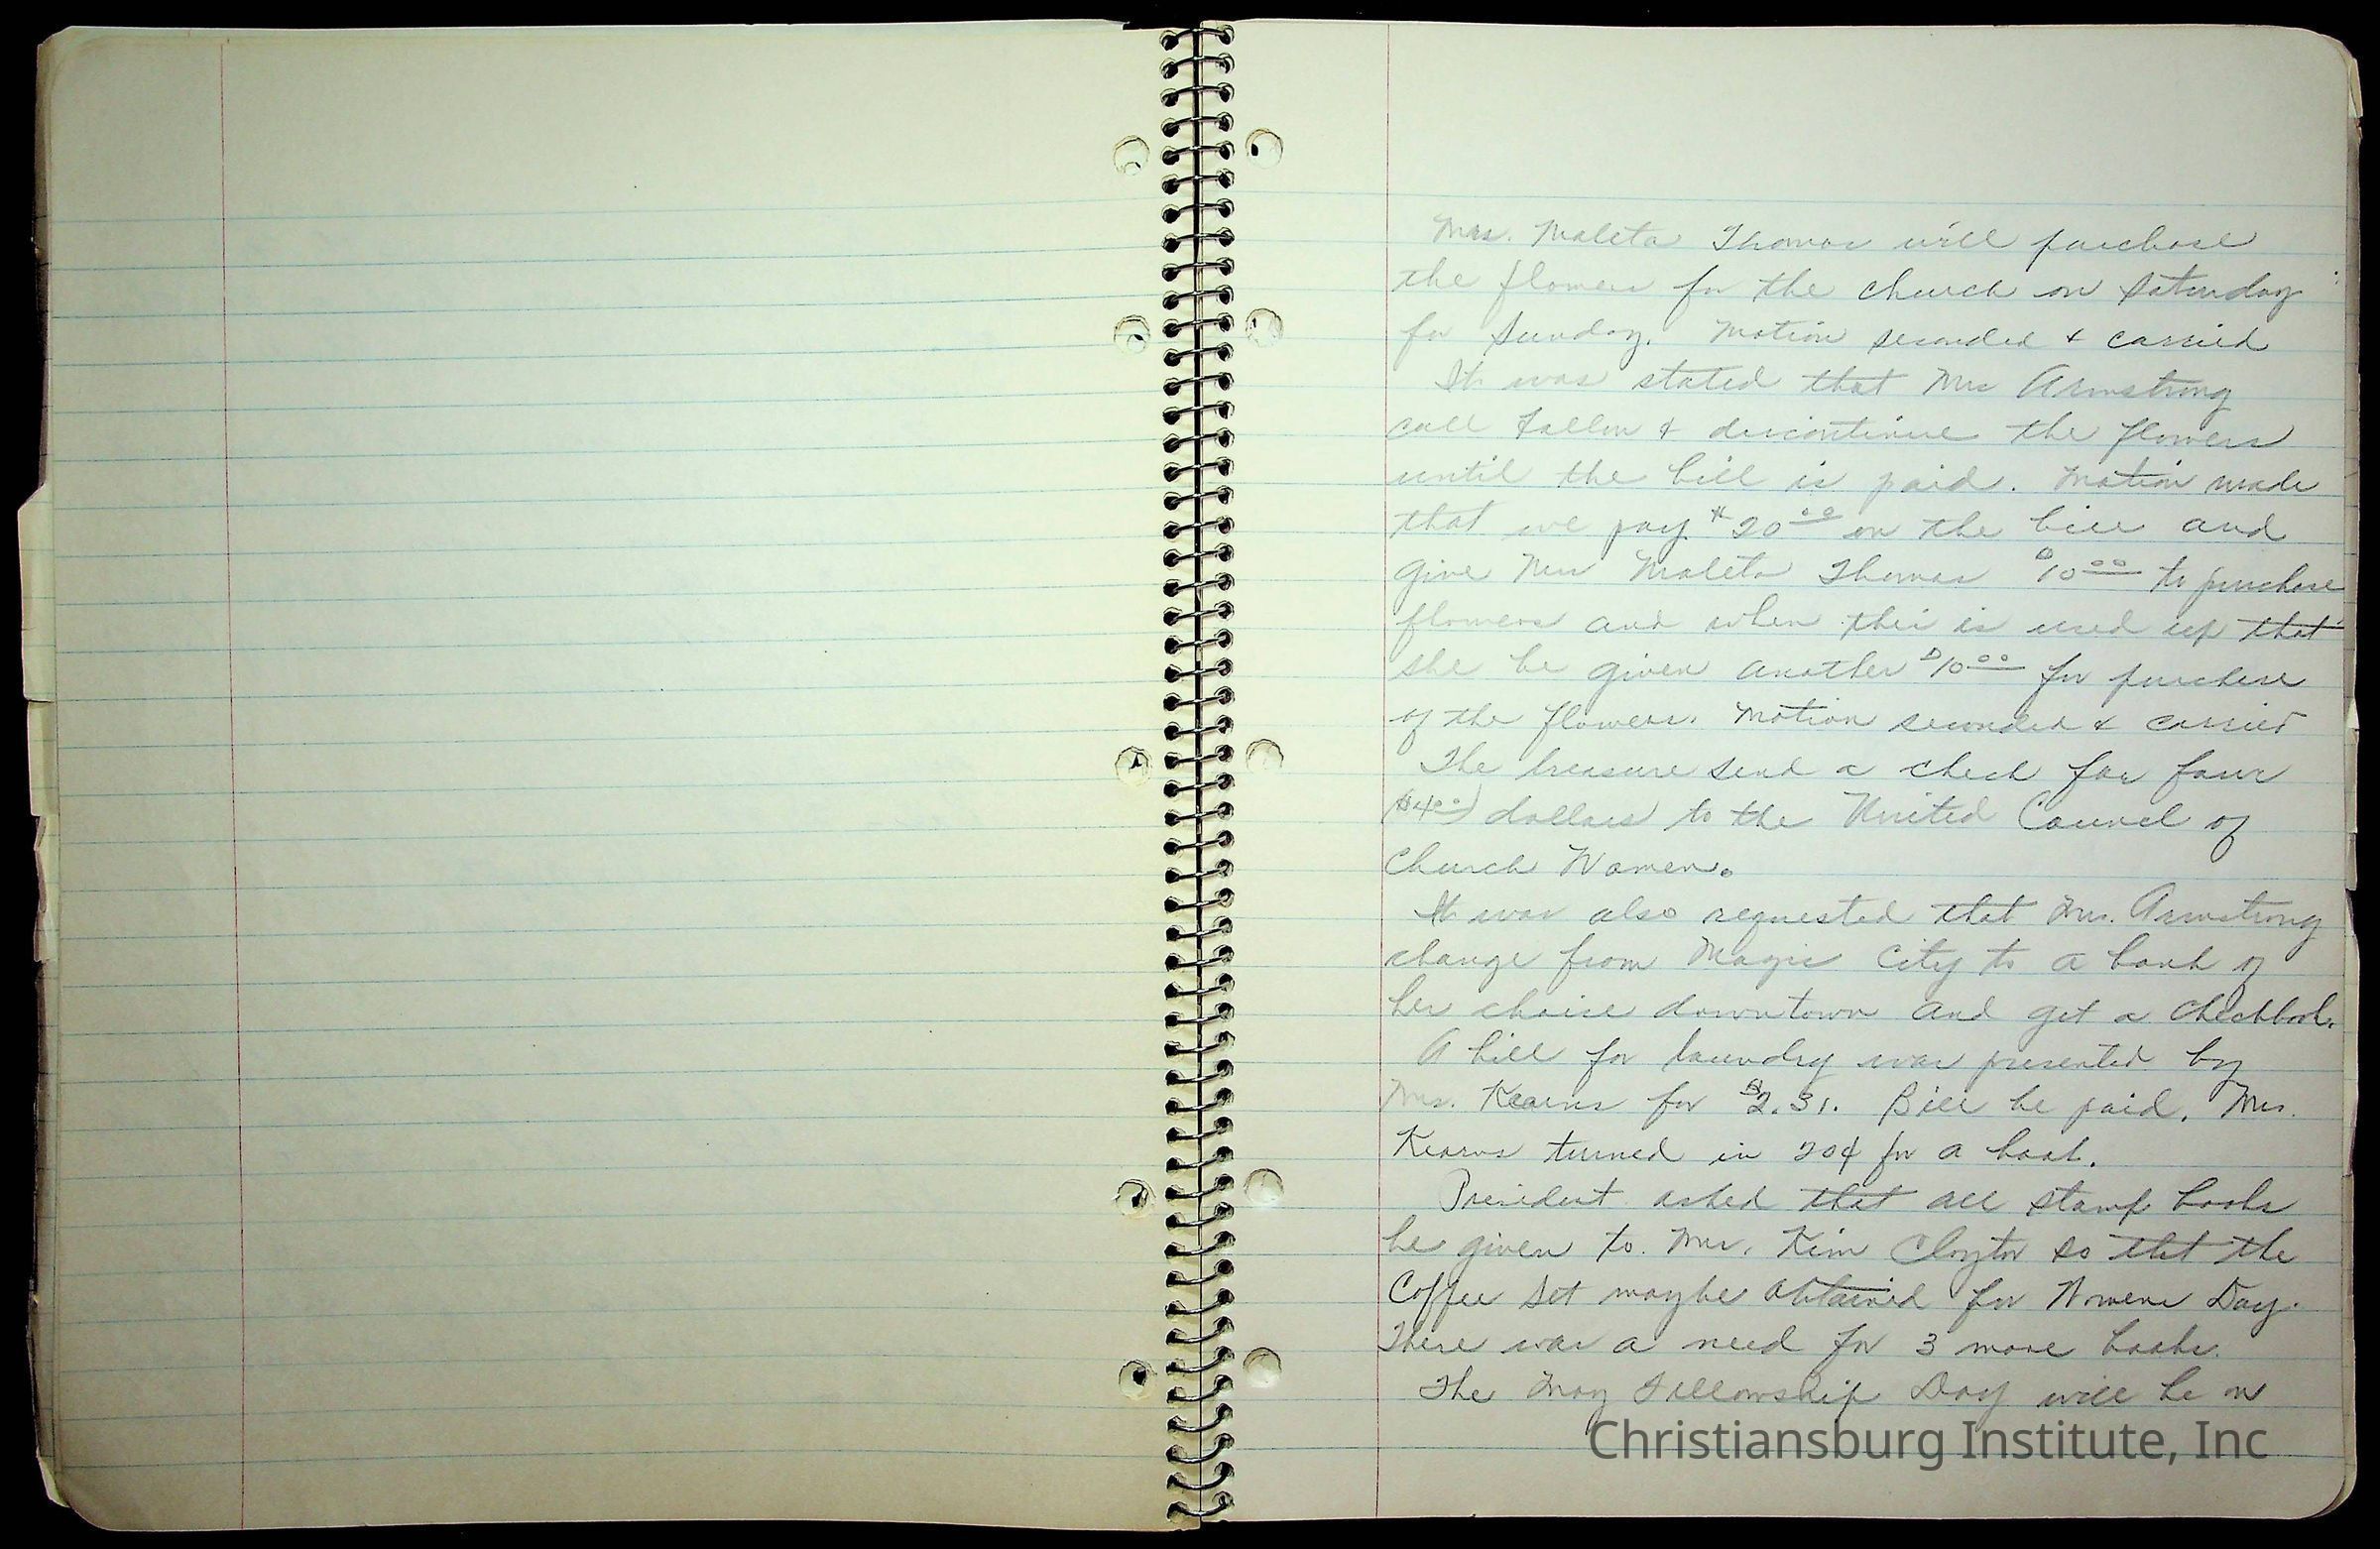 Mrs. Maleta Thomas will purchase
the flowers for the church on Saturday
for Sunday. Motion seconded & carried
It was stated that Mrs Armstrong
call Fallon & discontinue the flowers
until the bill is paid. Motion made
that we pay $20.00 on the bill and
give Mrs Maleta Thomas $10.00 to purchase
flowers and when this is used up that
she be given another $10.00 for purchase
of the flowers. Motion seconded & carried
The treasure send a check for four
($4.00) dollars to the United Council of
Church Women.
It was also requested that Mrs. Armstrong
change from Magic City to a bank of
her choice downtown and get a checkbook.
A bill for laundry was presented by
Mrs. Kearns for $2.31. Bill be paid. Mrs.
Kearns turned in 20¢ for a book.
President asked that all stamp books
be given to Mrs. Kim Clayton so that the
Coffee Set maybe obtained for Womens Day.
There was a need for 3 more books.
The May Fellowship Day will be on
Christiansburg Institute, Inc